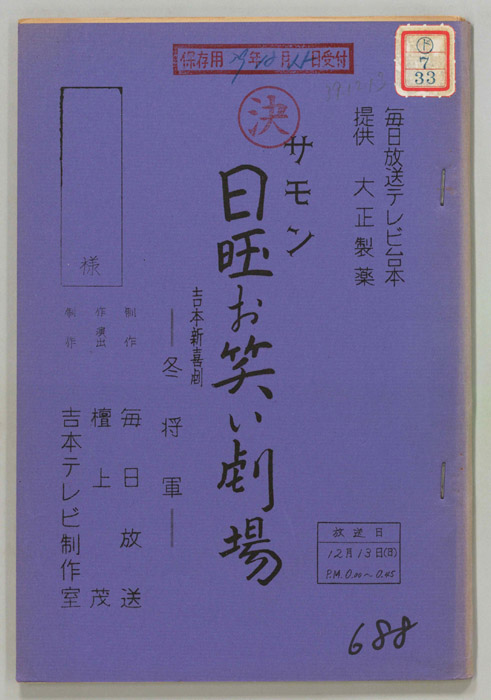 毎日放送テレビ台本
提供 大正製薬
保存用 年 月 日受付
決
下
7
33
サモン
日旺お笑い劇場
吉本新喜劇
―冬将軍―
様
制作 毎日放送
作・演出 檀上茂
制作 吉本テレビ制作室
放送日
12月13日(日)
P.M. 0.00~0.45
688